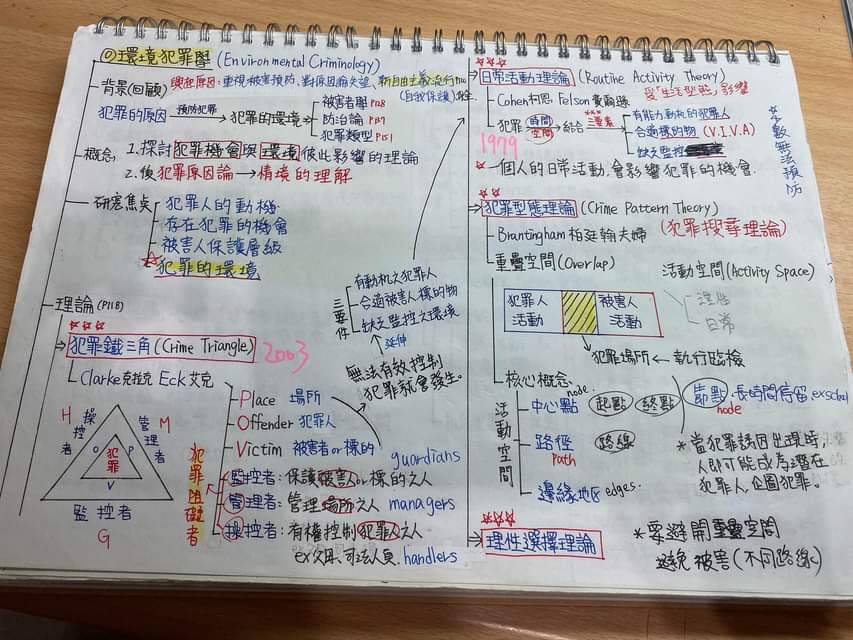 環境犯罪學 (Environmental Criminology)
背景(回顧) 興起原因：重視被害預防、對原因論失望、新自由主義流行
(自我保護)
犯罪的原因 預防犯罪 犯罪的環境
被害者學 P128
防治論 P139
犯罪類型 P151
概念
1.探討犯罪機會與環境彼此影響的理論
2.從犯罪原因論→情境的理解
研究焦點
犯罪人的動機
存在犯罪的機會
被害人保護層級
犯罪的環境
理論(P118)
犯罪鐵三角(Crime Triangle) 2003
Clarke克拉克 Eck艾克
Place 場所
Offender 犯罪人
Victim 被害者or標的
犯罪阻礙者
監控者：保護被害人or標的之人 guardians
管理者：管理場所之人 managers
操控者：有權控制犯罪人之人
ex父母、司法人員. handlers
H 操控者
管理者 M
O P
犯罪
V
監控者
G
三要件
有動機之犯罪人
合適被害人標的物
缺乏監控之環境
延伸
無法有效控制
犯罪就會發生.
日常活動理論 (Routine Activity Theory)
受"生活型態"影響
Cohen柯恩. Felson費爾遜
犯罪 時間 空間 結合 三要素
有能力動機的犯罪人
合適標的物 (V.I.V.A)
缺乏監控
1979
一個人的日常活動.會影響犯罪的機會.
無法預防
犯罪型態理論 (Crime Pattern Theory)
Brantingham 柏廷翰夫婦 (犯罪搜尋理論)
重疊空間(Overlap) 活動空間(Activity Space)
理性
日常
犯罪人活動
被害人活動
犯罪場所 ← 執行臨檢
核心概念
活動空間
中心點 node. 起點 終點 節點.長時間停留
node
路徑 path 路線
邊緣地區 edges.
*當犯罪誘因出現時,
人即可能成為潛在
犯罪人,企圖犯罪。
理性選擇理論
*要避開重疊空間
避免被害(不同路線)